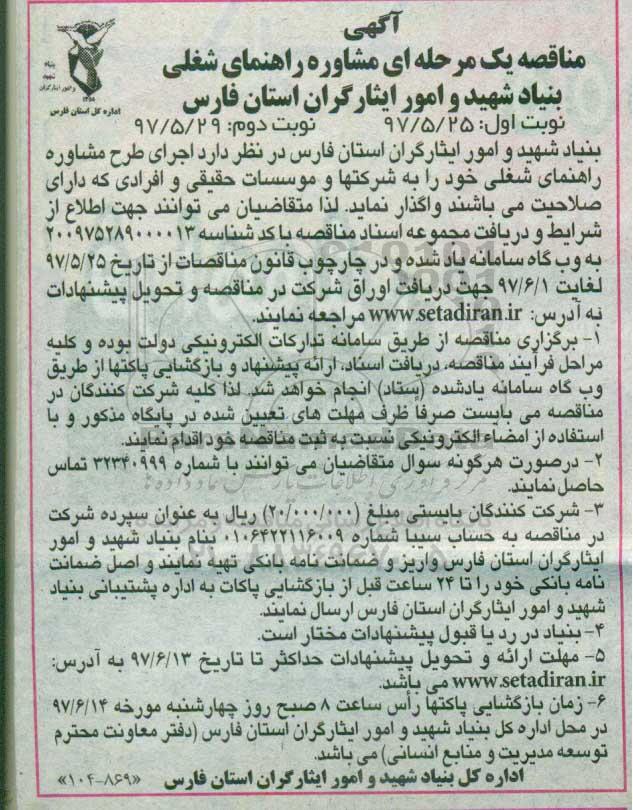 آگهی
مناقصه یک مرحله ای مشاوره راهنمای شغلی
بنیاد شهید و امور ایثارگران استان فارس
بنیاد
شهید
و امور ایثارگران
۱۳۵۸
اداره کل استان فارس
نوبت اول: ۹۷/۵/۲۵ نوبت دوم: ۹۷/۵/۲۹
بنیاد شهید و امور ایثارگران استان فارس در نظر دارد اجرای طرح مشاوره
راهنمای شغلی خود را به شرکتها و موسسات حقیقی و افرادی که دارای
صلاحیت می باشند واگذار نماید. لذا متقاضیان می توانند جهت اطلاع از
شرایط و دریافت مجموعه اسناد مناقصه با کد شناسه ۲۰۰۹۷۵۲۸۹۰۰۰۰۱۳
به وب گاه سامانه یاد شده و در چارچوب قانون مناقصات از تاریخ ۹۷/۵/۲۵
لغایت ۹۷/۶/۱ جهت دریافت اوراق شرکت در مناقصه و تحویل پیشنهادات
به آدرس: www.setadiran.ir مراجعه نمایند.
۱- برگزاری مناقصه از طریق سامانه تدارکات الکترونیکی دولت بوده و کلیه
مراحل فرآیند مناقصه، دریافت اسناد، ارائه پیشنهاد و بازگشایی پاکتها از طریق
وب گاه سامانه یادشده (ستاد) انجام خواهد شد. لذا کلیه شرکت کنندگان در
مناقصه می بایست صرفا ظرف مهلت های تعیین شده در پایگاه مذکور و با
استفاده از امضاء الکترونیکی نسبت به ثبت مناقصه خود اقدام نمایند.
۲- درصورت هرگونه سوال متقاضیان می توانند با شماره ۳۲۳۴۰۹۹۹ تماس
حاصل نمایند.
۳- شرکت کنندگان بایستی مبلغ (۲۰/۰۰۰/۰۰۰) ریال به عنوان سپرده شرکت
در مناقصه به حساب سیبا شماره ۰۱۰۶۴۲۲۱۱۶۰۰۹ بنام بنیاد شهید و امور
ایثارگران استان فارس واریز و ضمانت نامه بانکی تهیه نمایند و اصل ضمانت
نامه بانکی خود را تا ۲۴ ساعت قبل از بازگشایی پاکات به اداره پشتیبانی بنیاد
شهید و امور ایثارگران استان فارس ارسال نمایند.
۴- بنیاد در رد یا قبول پیشنهادات مختار است.
۵- مهلت ارائه و تحویل پیشنهادات حداکثر تا تاریخ ۹۷/۶/۱۳ به آدرس:
www.setadiran.ir می باشد.
۶- زمان بازگشایی پاکتها رأس ساعت ۸ صبح روز چهارشنبه مورخه ۹۷/۶/۱۴
در محل اداره کل بنیاد شهید و امور ایثارگران استان فارس (دفتر معاونت محترم
توسعه مدیریت و منابع انسانی) می باشد.
اداره کل بنیاد شهید و امور ایثارگران استان فارس «۱۰۴-۸۶۹»